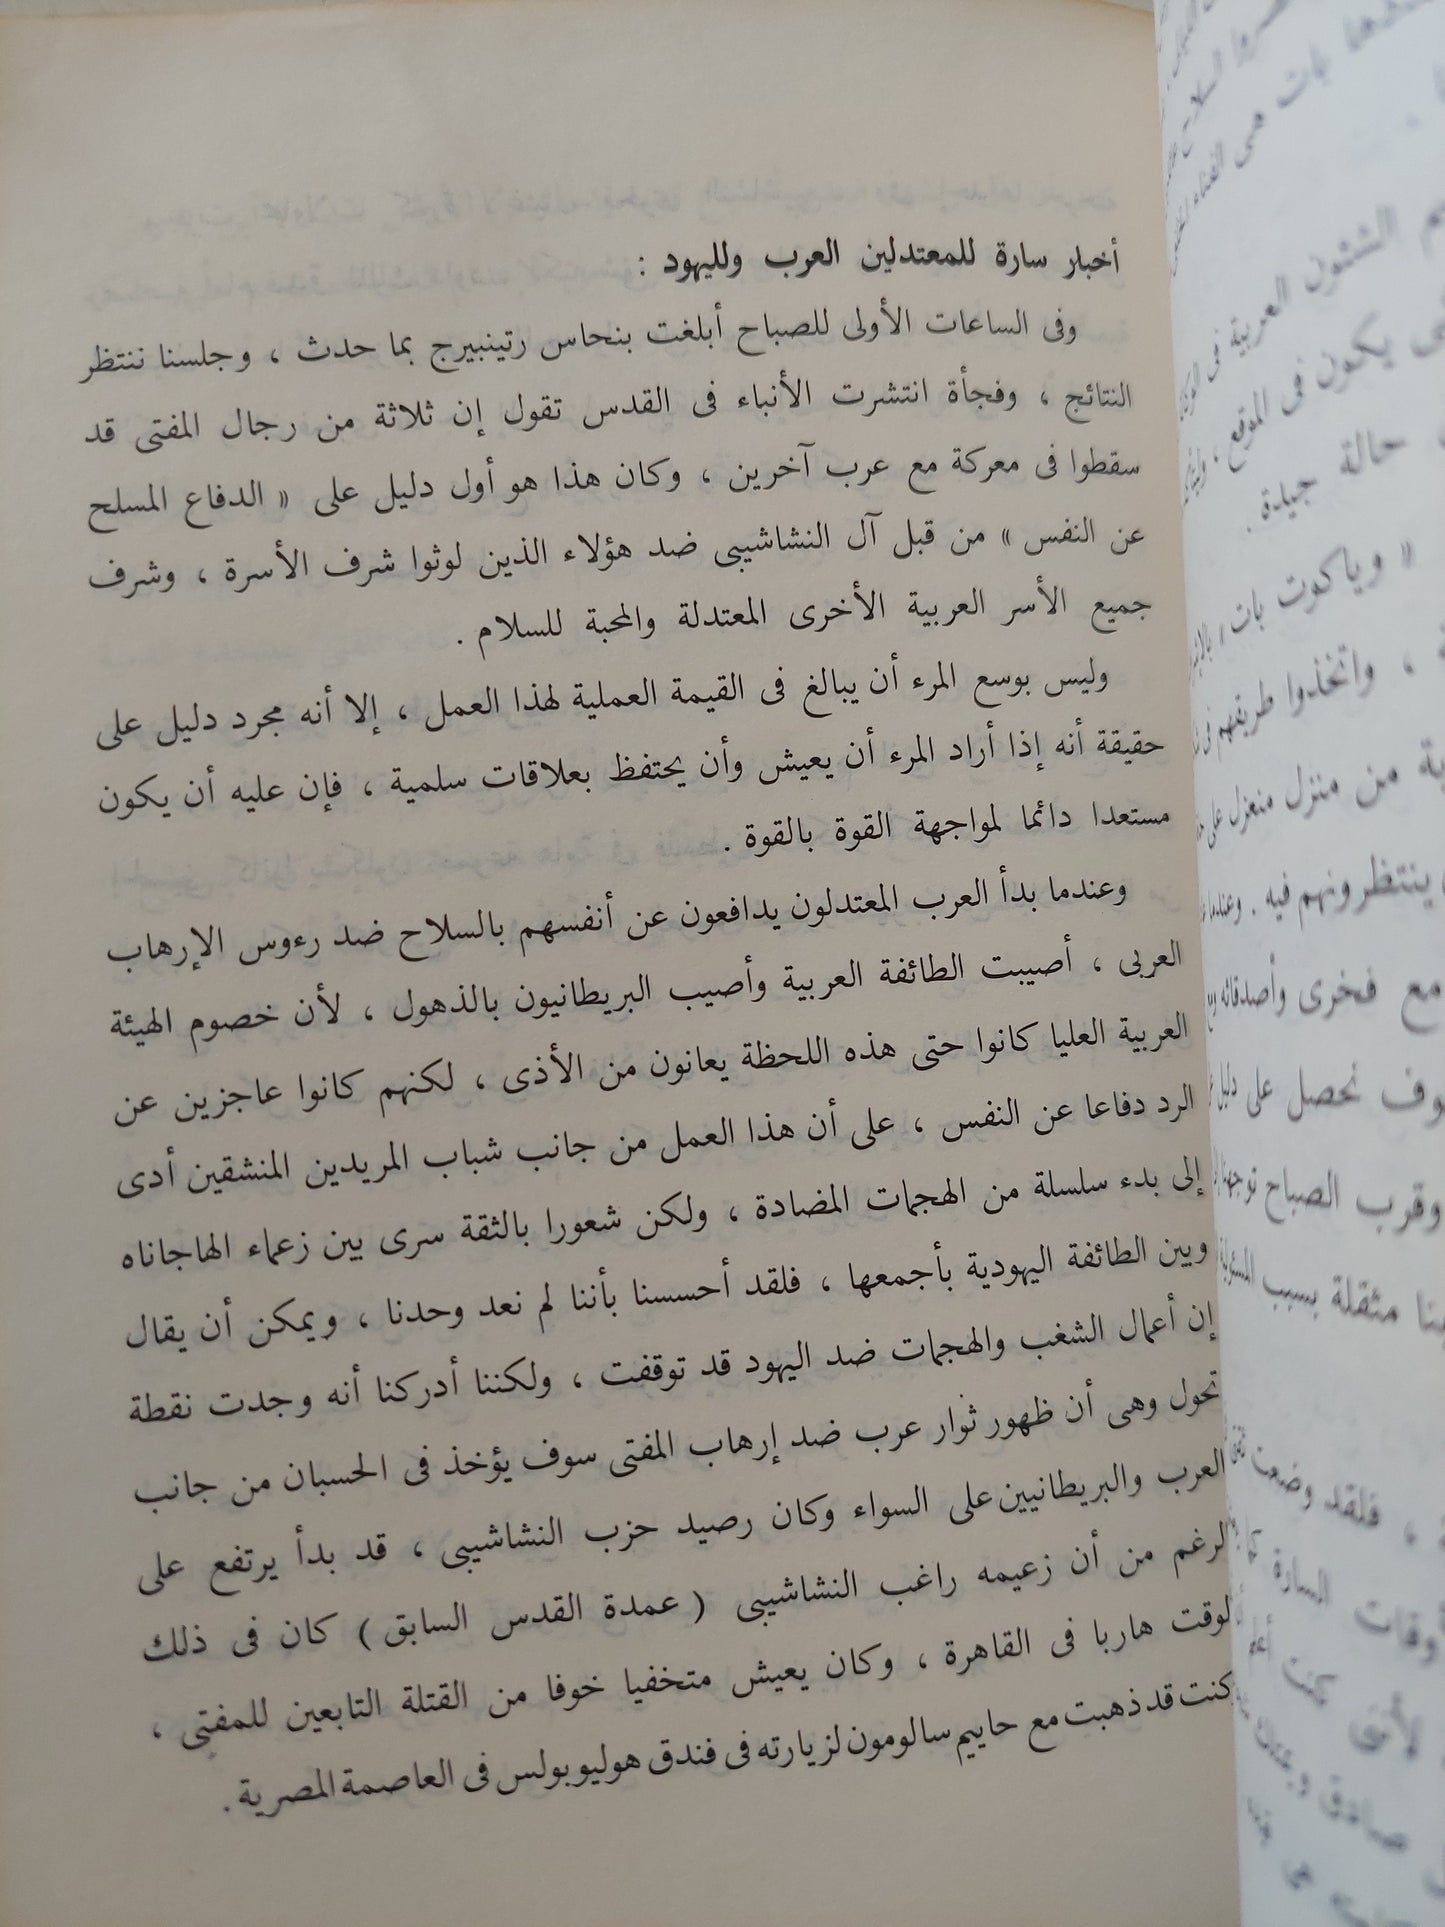 أخبار سارة للمعتدلين العرب ولليهود :
وفى الساعات الأولى للصباح أبلغت بنحاس رتينبيرج بما حدث ، وجلسنا ننتظر
النتائج ، وفجأة انتشرت الأنباء فى القدس تقول إن ثلاثة من رجال المفتى قد
سقطوا فى معركة مع عرب آخرين ، وكان هذا هو أول دليل على « الدفاع المسلح
عن النفس » من قبل آل النشاشيبى ضد هؤلاء الذين لوثوا شرف الأسرة ، وشرف
جميع الأسر العربية الأخرى المعتدلة والمحبة للسلام .
وليس بوسع المرء أن يبالغ فى القيمة العملية لهذا العمل ، إلا أنه مجرد دليل على
حقيقة أنه إذا أراد المرء أن يعيش وأن يحتفظ بعلاقات سلمية ، فإن عليه أن يكون
مستعدا دائما لمواجهة القوة بالقوة .
وعندما بدأ العرب المعتدلون يدافعون عن أنفسهم بالسلاح ضد رءوس الإرهاب
العربى ، أصيبت الطائفة العربية وأصيب البريطانيون بالذهول ، لأن خصوم الهيئة
العربية العليا كانوا حتى هذه اللحظة يعانون من الأذى ، لكنهم كانوا عاجزين عن
الرد دفاعا عن النفس ، على أن هذا العمل من جانب شباب المريدين المنشقين أدى
إلى بدء سلسلة من الهجمات المضادة ، ولكن شعورا بالثقة سرى بين زعماء الهاجاناه
وبين الطائفة اليهودية بأجمعها ، فلقد أحسسنا بأننا لم نعد وحدنا ، ويمكن أن يقال
إن أعمال الشغب والهجمات ضد اليهود قد توقفت ، ولكننا أدركنا أنه وجدت نقطة
تحول وهى أن ظهور ثوار عرب ضد إرهاب المفتى سوف يؤخذ فى الحسبان من جانب
العرب والبريطانيين على السواء وكان رصيد حزب النشاشيبى ، قد بدأ يرتفع على
الرغم من أن زعيمه راغب النشاشيبى ( عمدة القدس السابق ) كان فى ذلك
الوقت هاربا فى القاهرة ، وكان يعيش متخفيا خوفا من القتلة التابعين للمفتى ،
وكنت قد ذهبت مع حاييم سالومون لزيارته فى فندق هوليوبولس فى العاصمة المصرية .
الشئون العربية فى
يكون فى الموقع ،
حالة جيدة .
« وياكوت بات »
، واتخذوا طريقهم
من منزل منعزل على
ينتظرونهم فيه . وعندما
مع فخرى وأصدقائه
نحصل على دليل
وقرب الصباح توجهنا
مثقلة بسبب
، فلقد وضعت
السارة